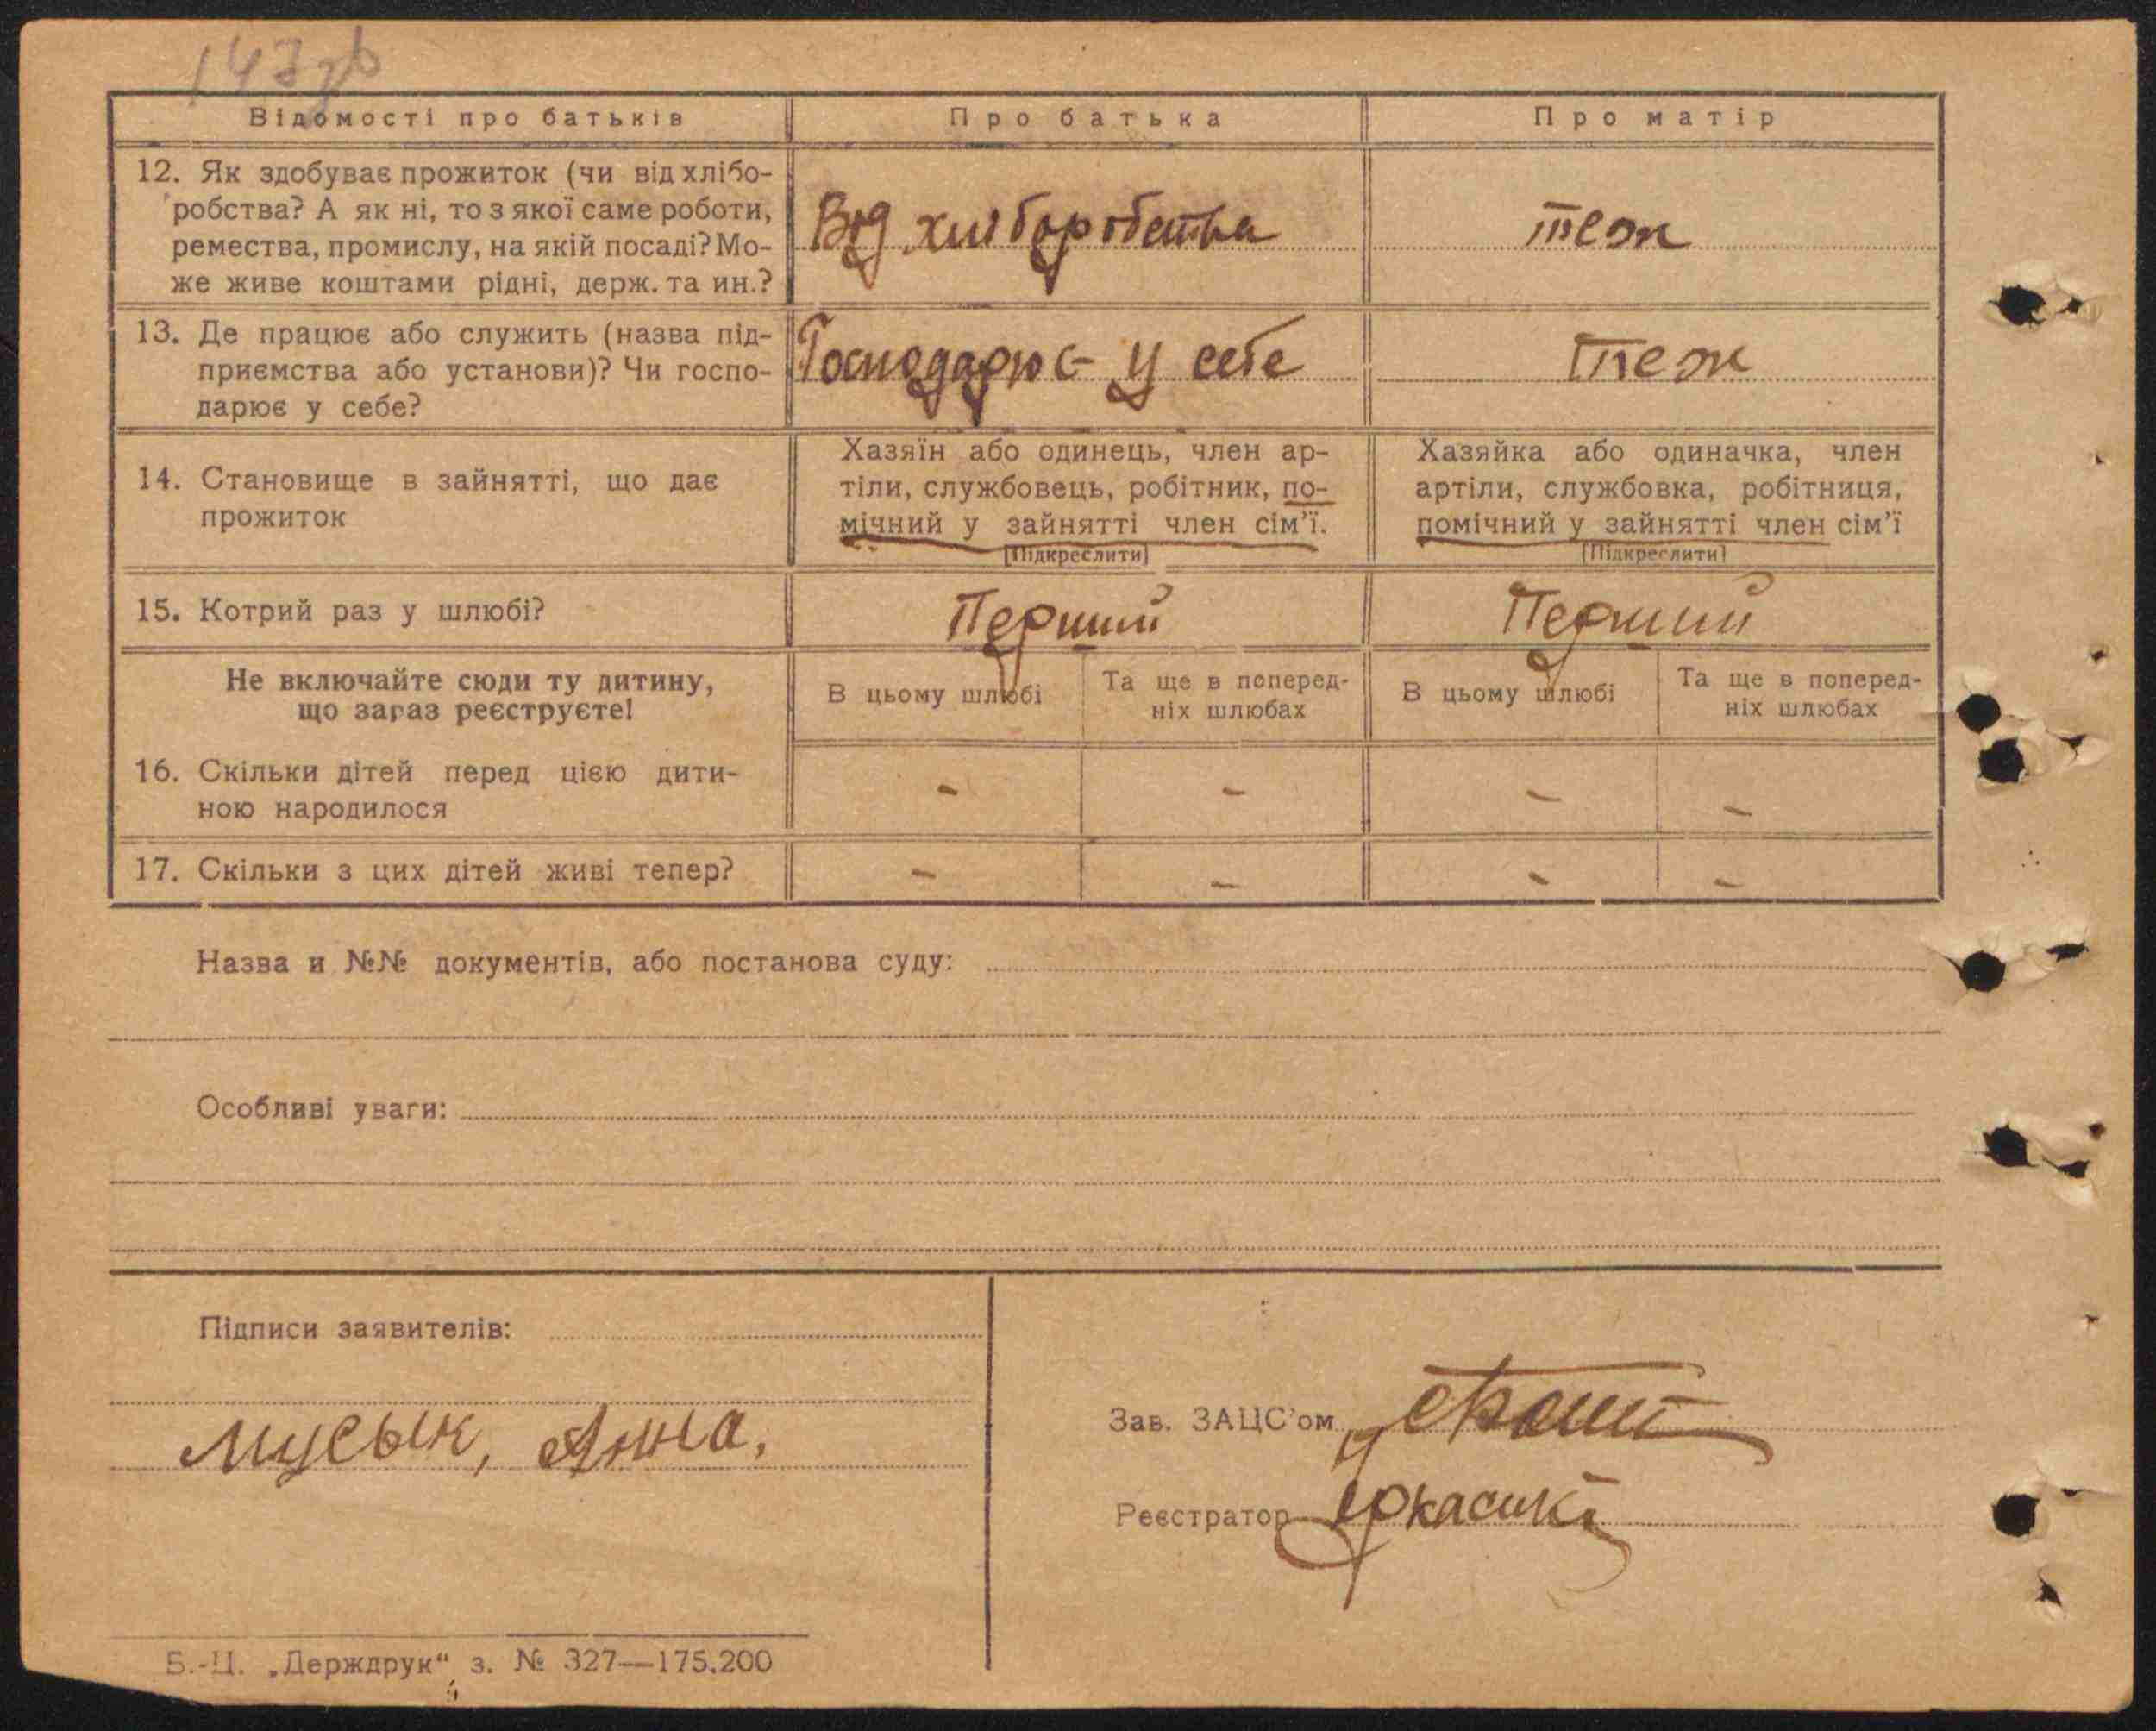 147зв
Відомості про батьків
Про батька
Про матір
12. Як здобуває прожиток (чи від хлібо-
робства? А як ні, то з якої саме роботи,
ремества, промислу, на якій посаді? Мо-
же живе коштами рідні, держ. та ин.?
Від хліборобства
теж
13. Де працює або служить (назва під-
приємства або установи)? Чи госпо-
дарює у себе?
Господарює у себе
теж
14. Становище в зайнятті, що дає
прожиток
Хазяїн або одинець, член ар-
тіли, службовець, робітник, по-
мічний у зайнятті член сім'ї.
[Підкреслити]
Хазяйка або одиначка, член
артіли, службовка, робітниця,
помічний у зайнятті член сім'ї
[Підкреслити]
15. Котрий раз у шлюбі?
Перший
Перший
Не включайте сюди ту дитину,
що зараз реєструєте!
В цьому шлюбі
Та ще в поперед-
ніх шлюбах
В цьому шлюбі
Та ще в поперед-
ніх шлюбах
16. Скільки дітей перед цією дити-
ною народилося
- - - -
17. Скільки з цих дітей живі тепер?
- - - -
Назва и №№ документів, або постанова суду:
Особливі уваги:
Підписи заявителів:
Мусык, Анна,
Зав. ЗАЦС'ом
Реєстратор
Б.-Ц. „Держдрук“ з. № 327—175.200